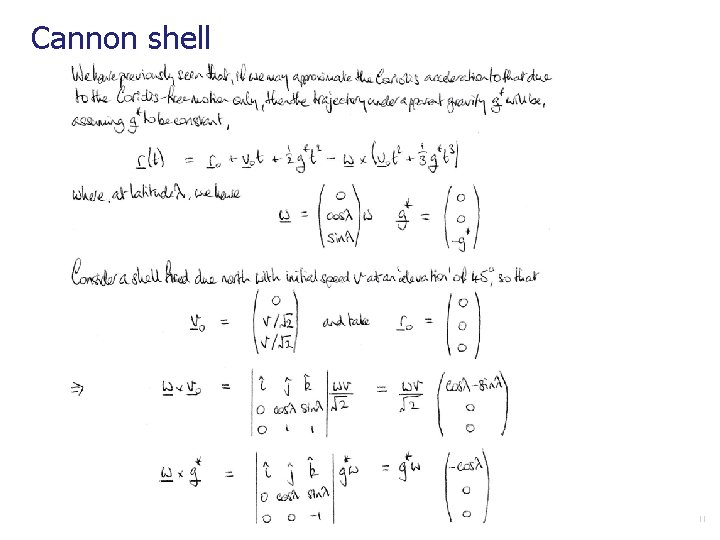 Cannon shell
We have previously seen that, if we may approximate the Coriolis acceleration to that due
to the Coriolis-free motion only, then the trajectory under apparent gravity g* will be,
assuming g* to be constant,
r(t) = r₀ + v₀t + ½g*t² − ω × (v₀t² + ⅓g*t³)
where, at latitude λ, we have
ω = (0, cosλ, sinλ) ω   g* = (0, 0, -g*)
Consider a shell fired due north with initial speed v at an 'elevation' of 45°, so that
v₀ = (0, v/√2, v/√2)   and take   r₀ = (0, 0, 0)
⇒ ω × v₀ = | î ĵ k̂ ; 0 cosλ sinλ ; 0 1 1 | ωv/√2 = ωv/√2 (cosλ − sinλ, 0, 0)
ω × g* = | î ĵ k̂ ; 0 cosλ sinλ ; 0 0 −1 | g*ω = g*ω (−cosλ, 0, 0)
11